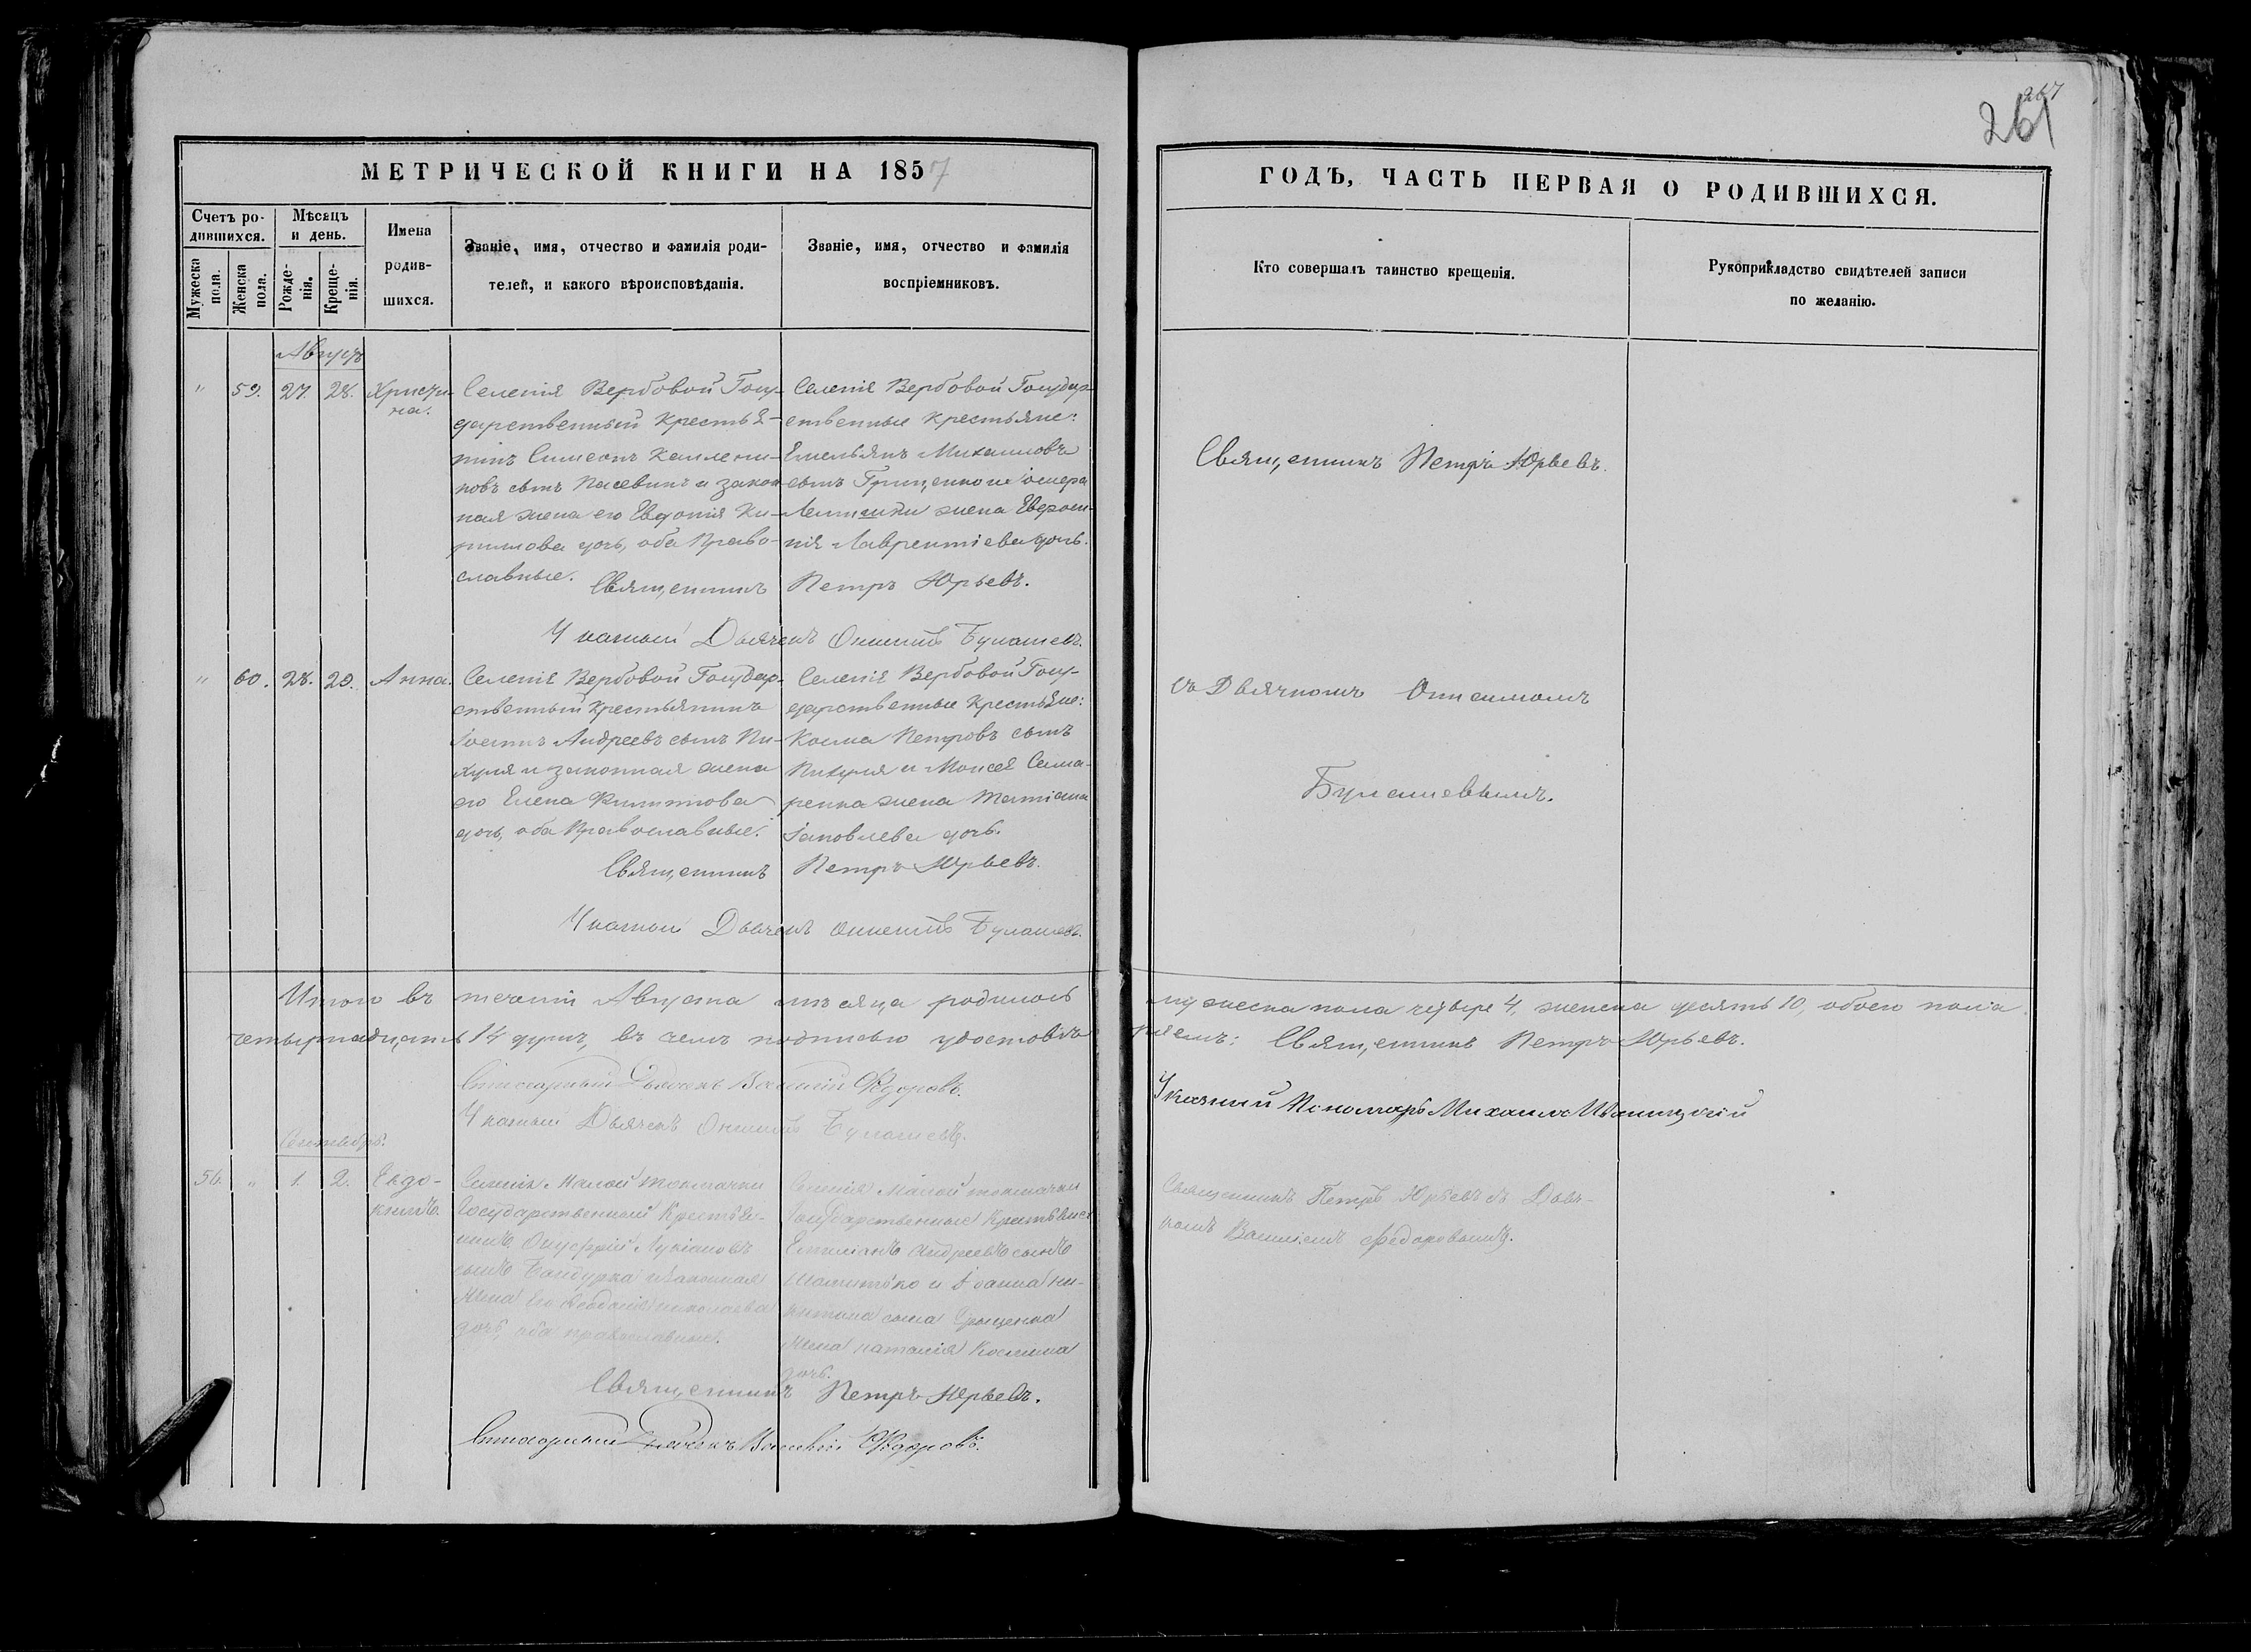 267
261
МЕТРИЧЕСКОЙ КНИГИ НА 1857
ГОДЪ, ЧАСТЬ ПЕРВАЯ О РОДИВШИХСЯ.
Счетъ ро-
дившихся.
Мужеска пола.
Женска пола.
Мѣсяцъ
и день.
Рожде-
нія.
Креще-
нія.
Имена
родив-
шихся.
Званіе, имя, отчество и фамилія роди-
телей, и какого вѣроисповѣданія.
Званіе, имя, отчество и фамилія
воспріемниковъ.
Кто совершалъ таинство крещенія.
Рукоприкладство свидѣтелей записи
по желанію.
Августъ
" 59. 27. 28. Христи-
на.
Селенія Вербовой Госу-
дарственный Крестья-
нинъ Симеонъ
сынъ и закон-
ная жена его Евдокія Ки-
рилова дочь, оба Право-
славные.
Селенія Вербовой Государ-
ственные Крестьяне:
Емельянъ Михаиловъ
сынъ Гриценко и
жена Евфроси-
нія Лаврентіева дочь.
Священникъ Петръ Юрьевъ.
Указный Дьячекъ Онисимъ Булашевъ.
Священникъ Петръ Юрьевъ.
" 60. 28. 29. Анна.
Селенія Вербовой Государ-
ственный Крестьянинъ
Іоаннъ Андреевъ сынъ Пи-
куля и законная жена
его Елена Филиппова
дочь, оба Православные.
Селенія Вербовой Госу-
дарственные Крестьяне:
Косма Петровъ сынъ
Пикуля и Моисея Сама-
ренка жена Татіана
Іаковлева дочь.
Священникъ Петръ Юрьевъ.
Указный Дьячекъ Онисимъ Булашевъ.
съ Дьячкомъ Онисимомъ
Булашевымъ.
Итого въ теченіи Августа мѣсяца родилось мужеска пола четыре 4, женска десять 10, обоего пола
четырнадцать 14 душъ, въ чемъ подписью удостовѣряемъ: Священникъ Петръ Юрьевъ.
Стихарный Дьячекъ Василій Ѳедоровъ.
Указный Дьячекъ Онисимъ Булашевъ.
Указный Пономарь Михаилъ Иваницкій
Сентябрь.
56. " 1. 2. Евдо-
кимъ.
Селенія Малой Токмачки
Государственный Крестья-
нинъ Онуфрій Лукіановъ
сынъ Бандурка и законная
жена его Ѳеодосія Николаева
дочь, оба православные.
Селенія Малой Токмачки
Государственные Крестьяне:
Емиліанъ Андреевъ сынъ
и Іоанна Ни-
китина сына
жена Наталія Космина
дочь.
Священникъ Петръ Юрьевъ.
Стихарный Дьячекъ Василій Ѳедоровъ.
Священникъ Петръ Юрьевъ съ Дьяч-
комъ Василіемъ Ѳедоровымъ.